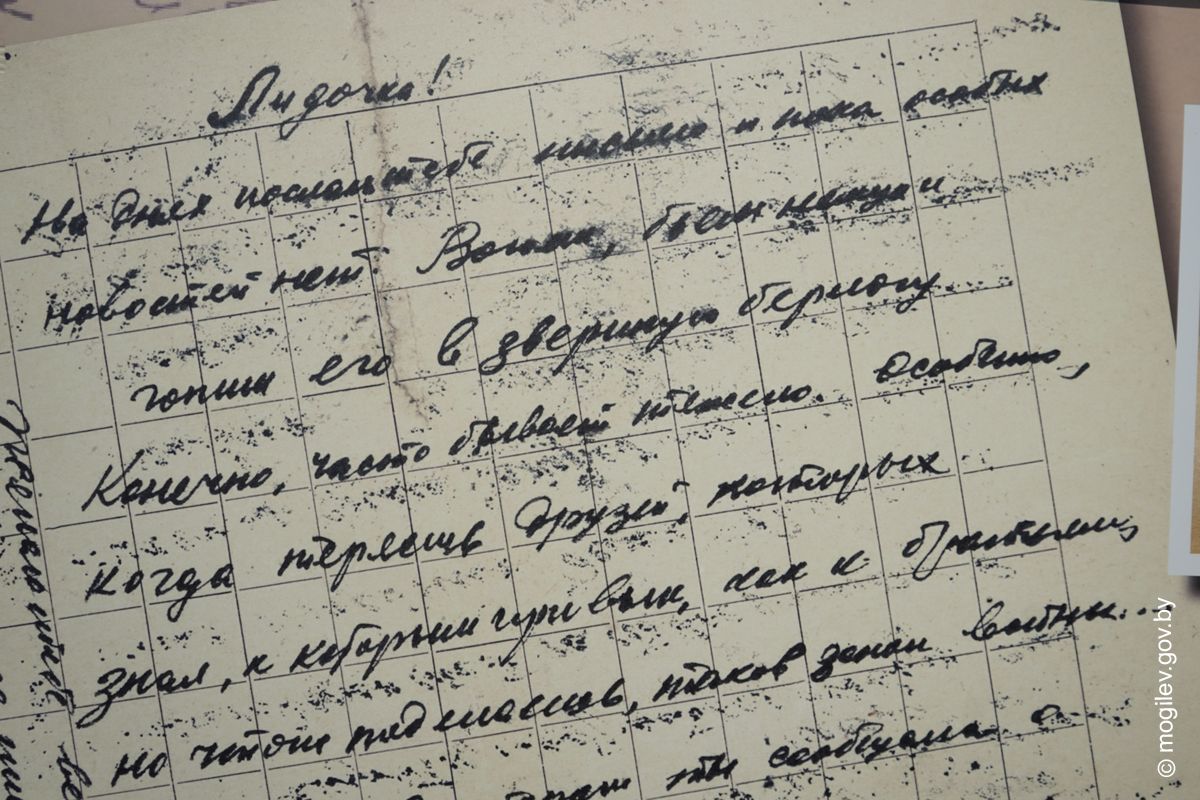 Лидочка!
На днях послал тебе письмо и пока особых
новостей нет. Воюем, бьем немчуру и
гоним его в звериную берлогу.
Конечно, часто бывает тяжело. Особенно,
когда теряешь друзей, которых
знал, к которым привык, как к братьям,
но что ж поделаешь, таков закон войны...
ты сообщала о
© mogilev.gov.by